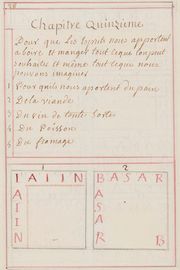 Chapitre Quinzieme
Pour que Les Esprits nous apportent
a boire et manger tout ceque lonpeut
souhaiter et même tout ceque nous
pouvons imaginer
1 Pour quils nous aportent du pain
2 Dela viande
3 Du vin de toute Sortes
4 Du Poisson
5 Du fromage
1
2
IAIIN
A
I
I
N
BASAR
A
S
A
R B